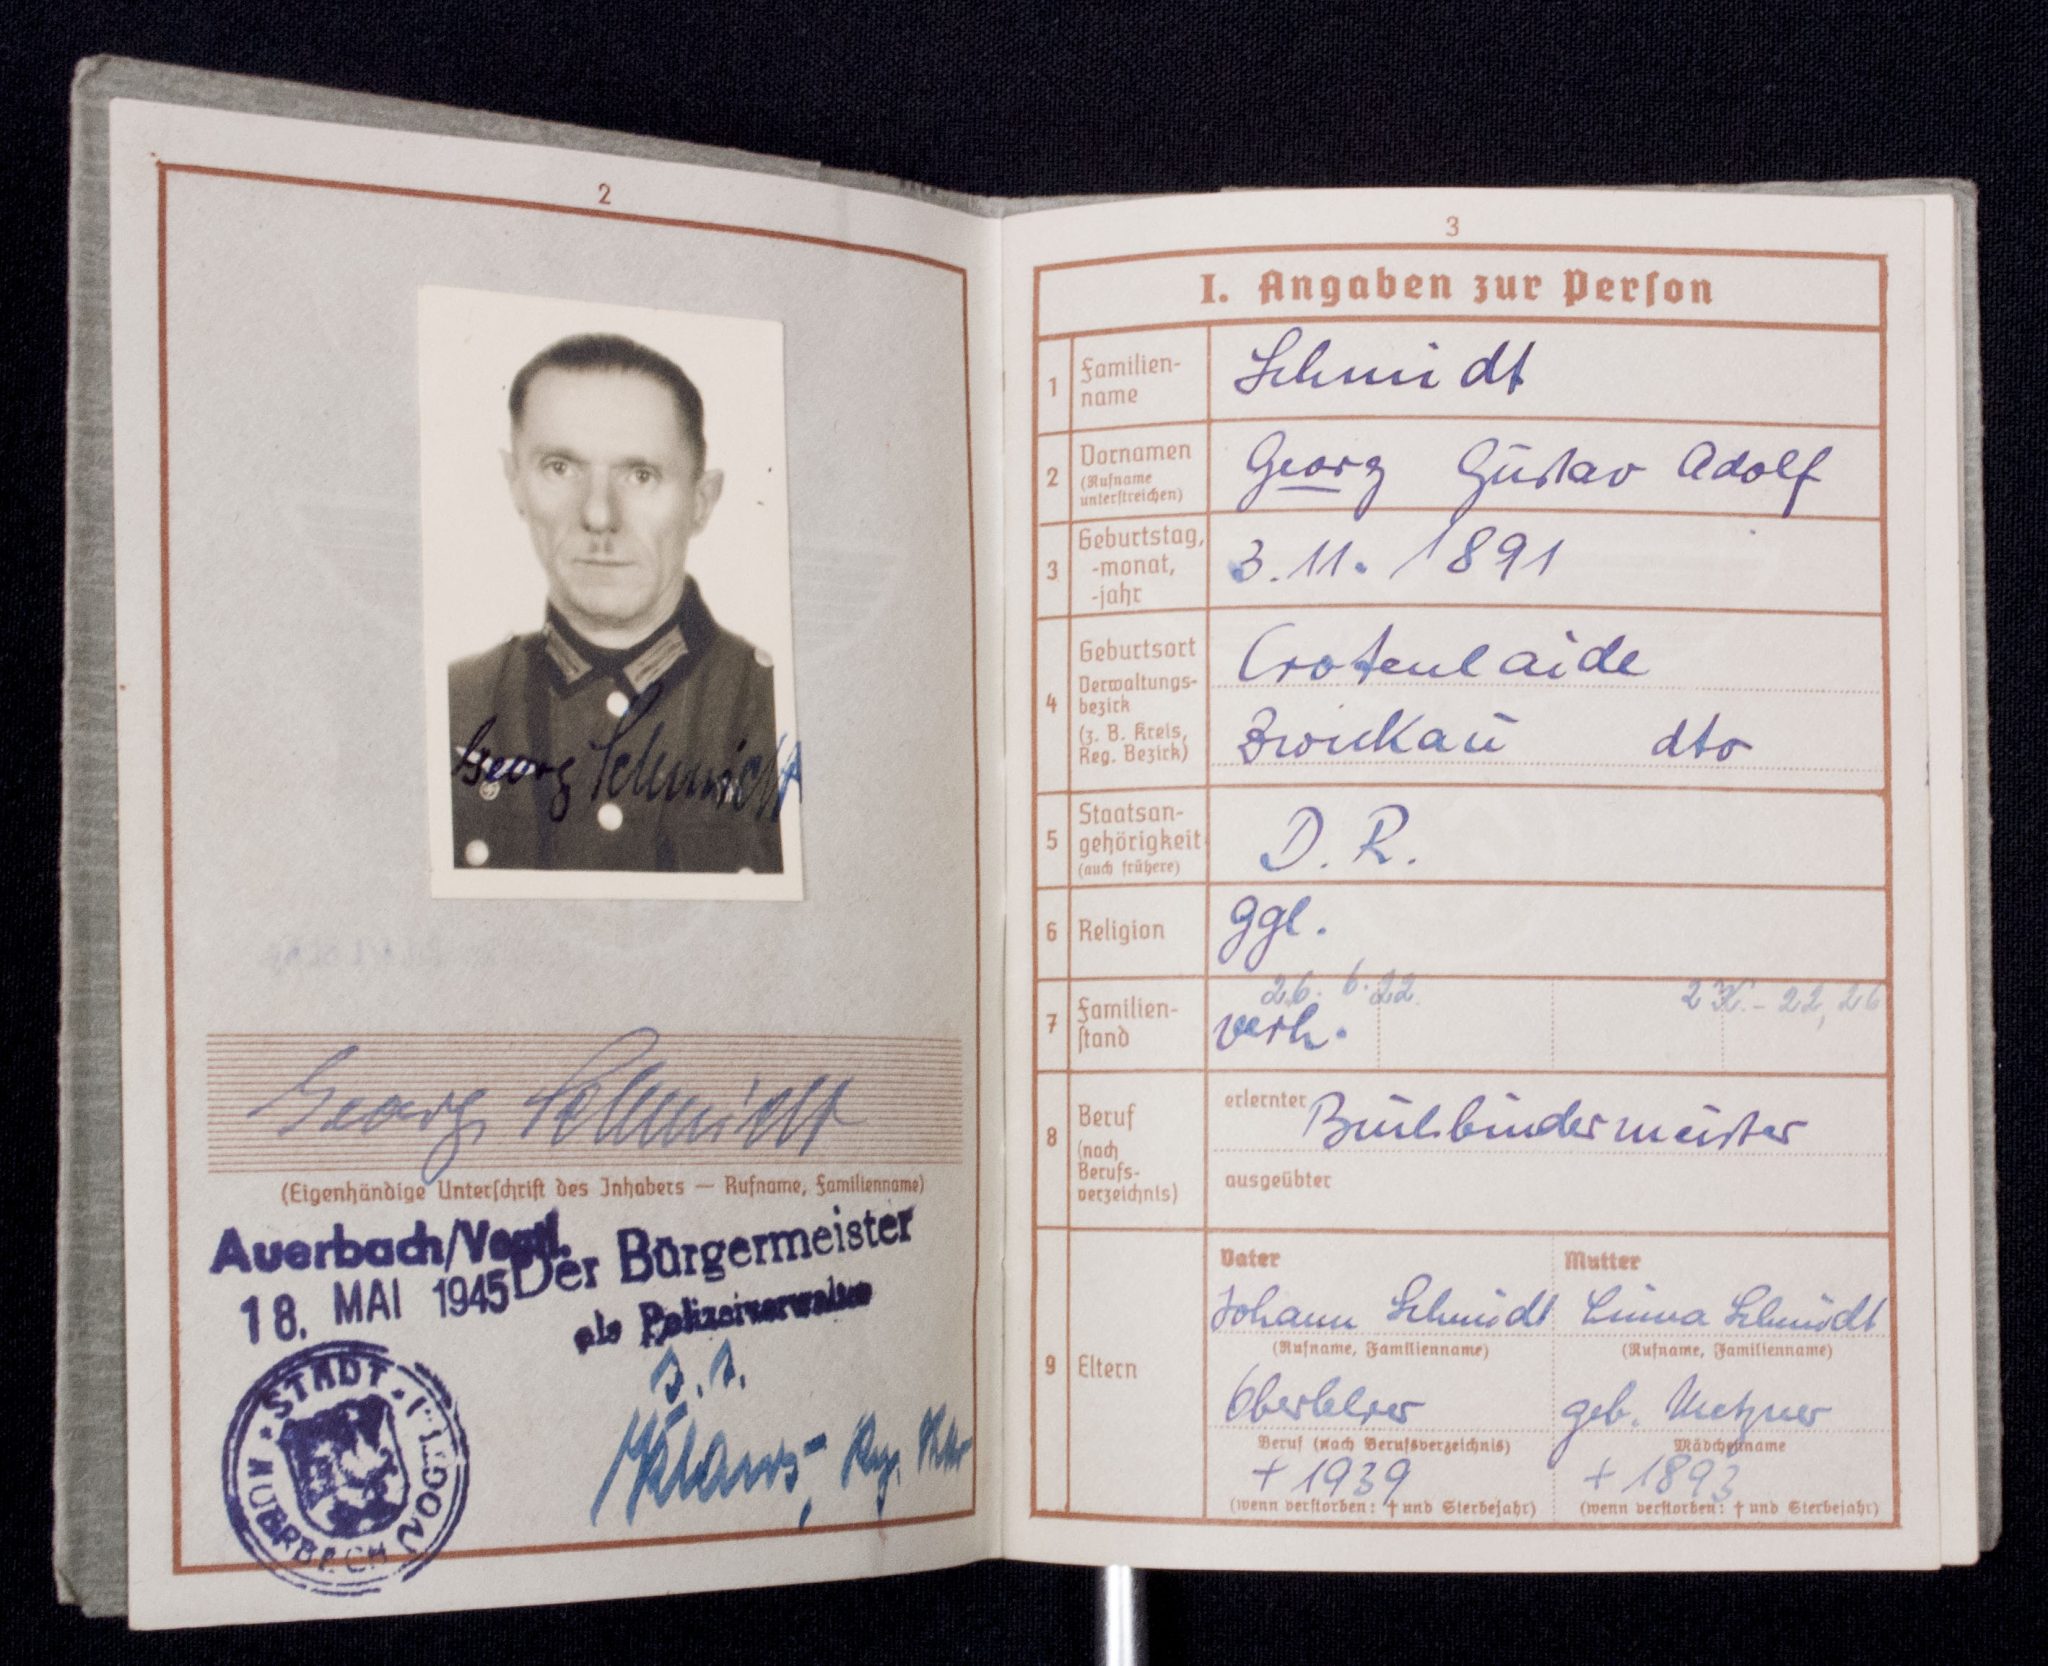 2
Georg Schmidt
Georg Schmidt
(Eigenhändige Unterschrift des Inhabers — Rufname, Familienname)
Auerbach/Vogtl.
18. MAI 1945
Der Bürgermeister
als Polizeiverwalter
STADT AUERBACH
3
I. Angaben zur Perſon
1 Familien-
name
Schmidt
2 Vornamen
(Rufname
unterſtreichen)
Georg Gustav Adolf
3 Geburtstag,
-monat,
-jahr
3. 11. 1891
4 Geburtsort
Verwaltungs-
bezirk
(z. B. Kreis,
Reg. Bezirk)
Crotenlaide
Zwickau dto
5 Staatsan-
gehörigkeit
(auch frühere)
D. R.
6 Religion
ggl.
7 Familien-
ſtand
26. 6. 22
verh.
2 K. - 22, 26
8 Beruf
(nach
Berufs-
verzeichnis)
erlernter Buchbindermeister
ausgeübter
9 Eltern
Vater Mutter
Johann Schmidt Linna Schmidt
(Rufname, Familienname) (Rufname, Familienname)
Oberlehrer geb. Metzner
Beruf (nach Berufsverzeichnis) Mädchenname
+ 1939 + 1893
(wenn verſtorben: † und Sterbejahr) (wenn verſtorben: † und Sterbejahr)